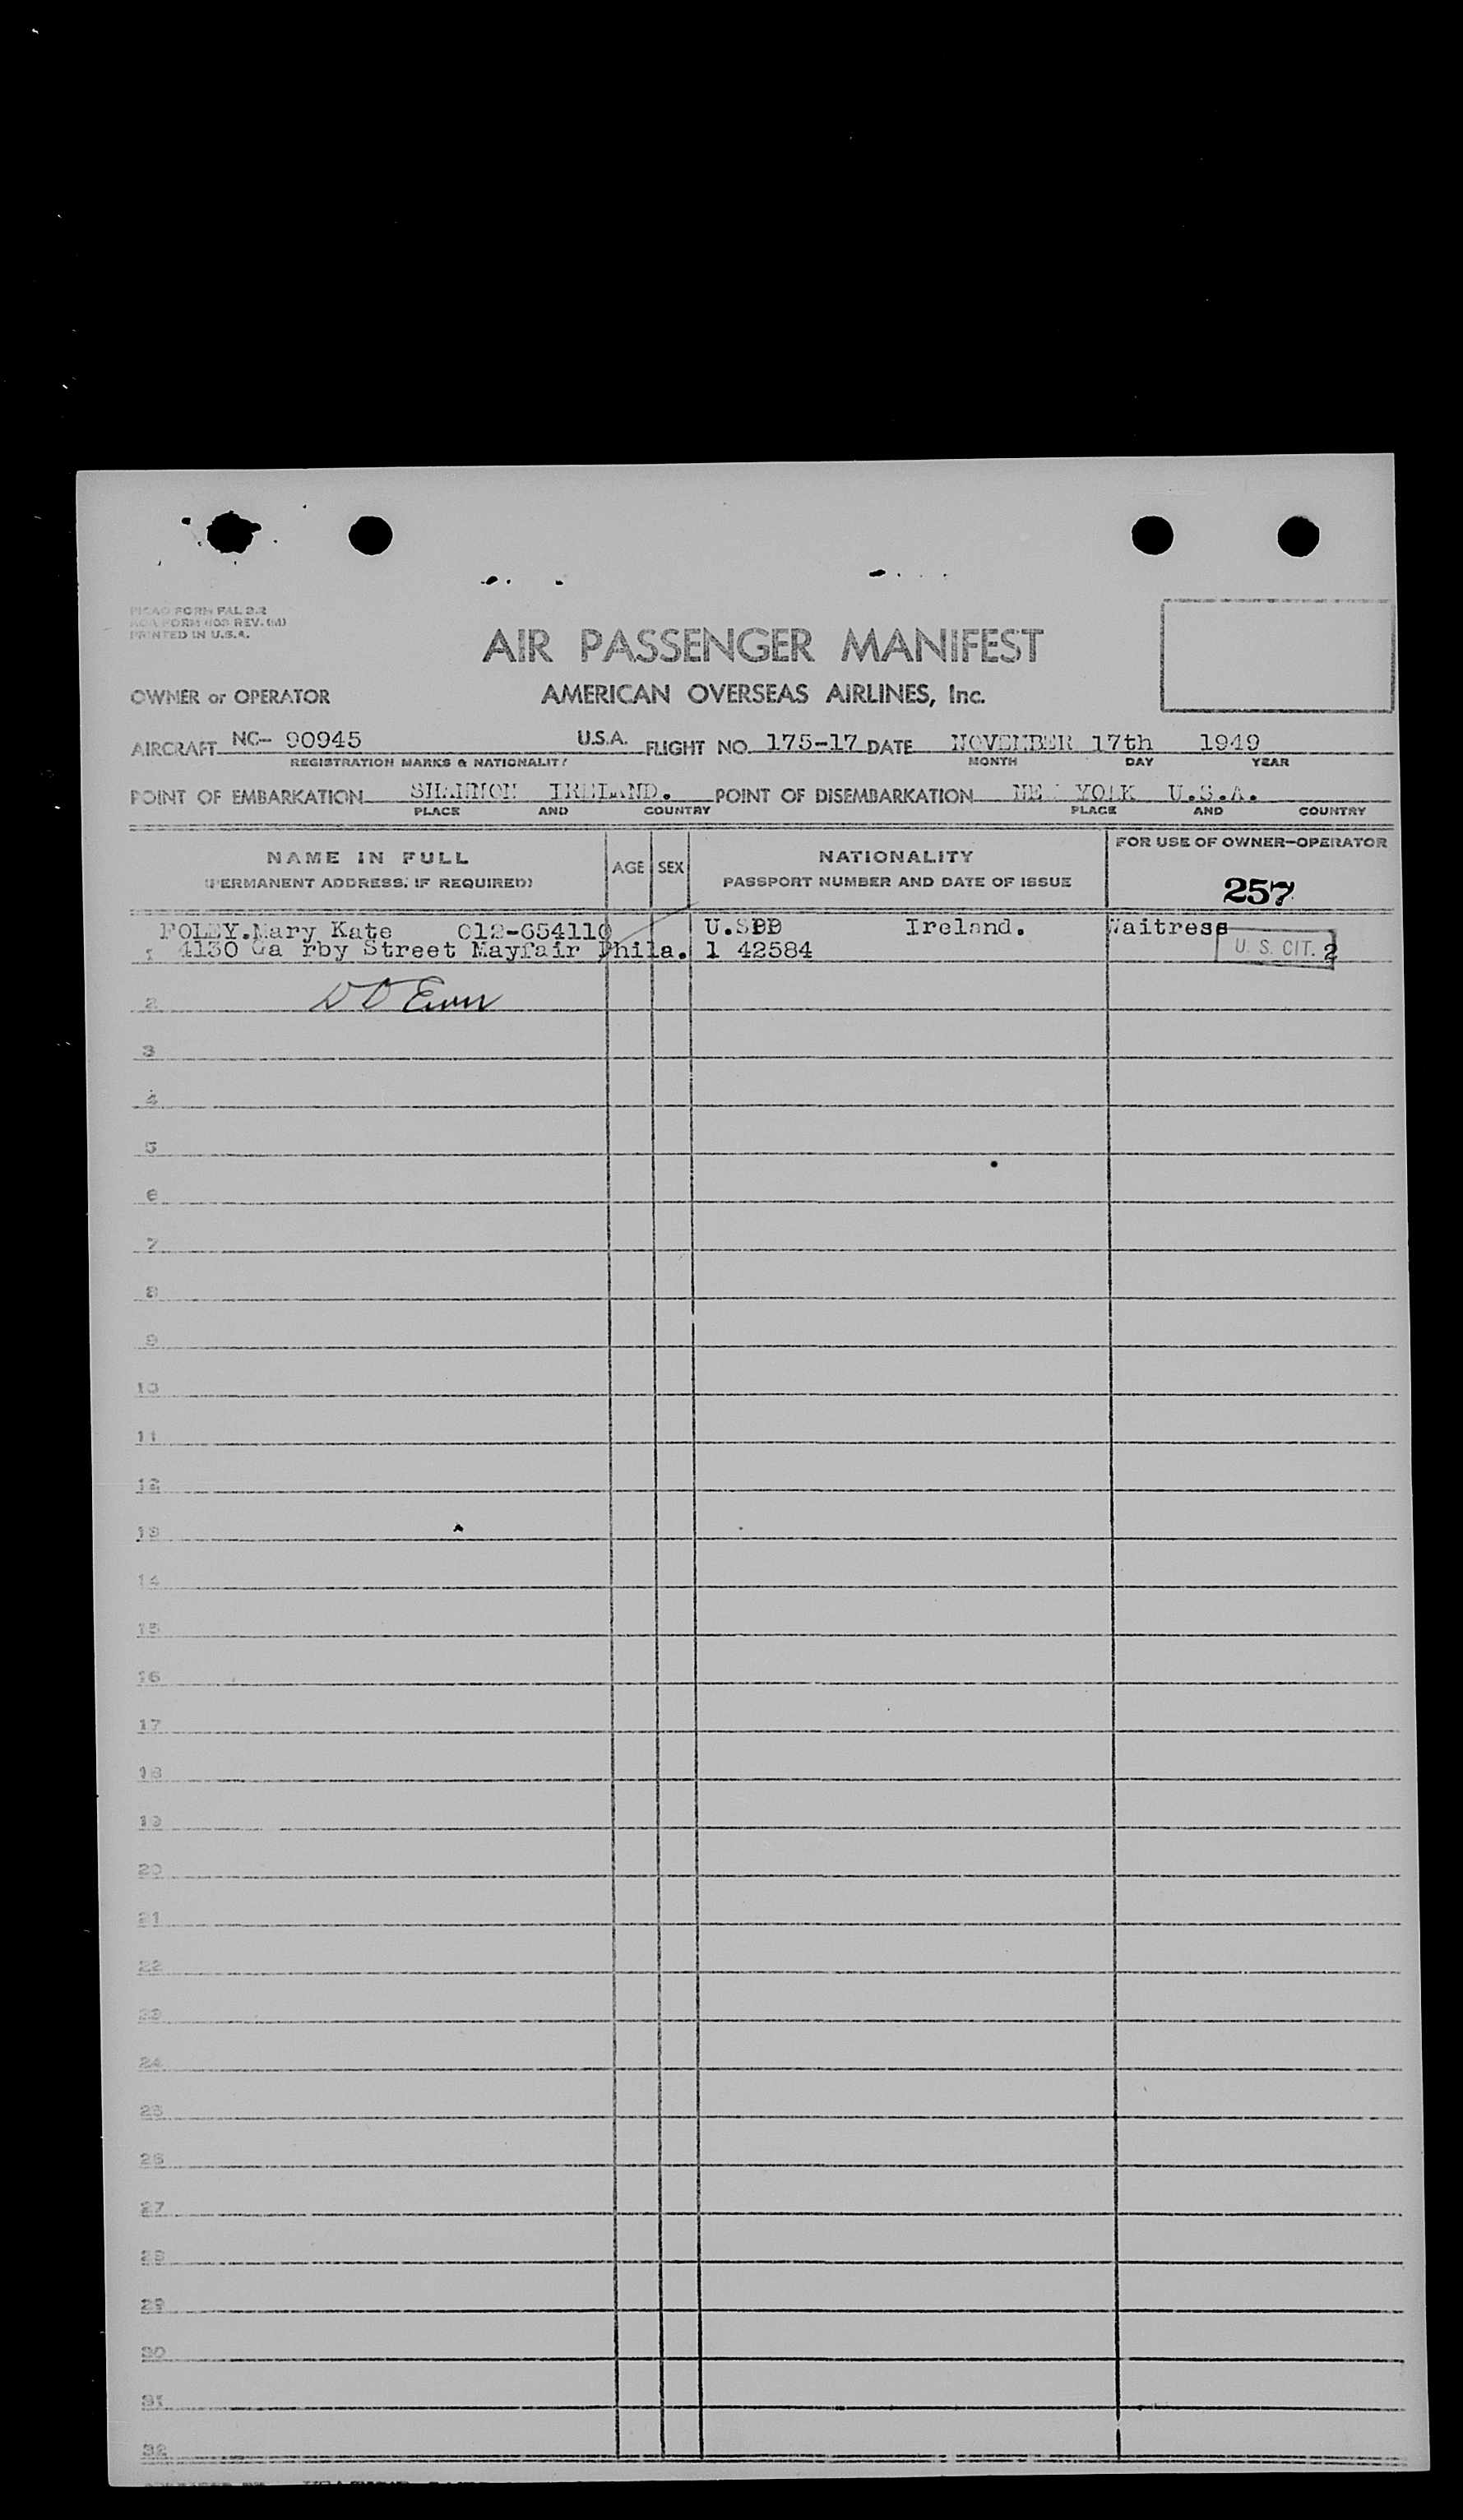 PICAO FORM FAL 2.2
AOA FORM 1103 REV. (M)
PRINTED IN U.S.A.
AIR PASSENGER MANIFEST
OWNER or OPERATOR AMERICAN OVERSEAS AIRLINES, Inc.
AIRCRAFT NC- 90945 U.S.A. FLIGHT NO. 175-17 DATE NOVEMBER 17th 1949
REGISTRATION MARKS & NATIONALITY MONTH DAY YEAR
POINT OF EMBARKATION SHANNON IRELAND. POINT OF DISEMBARKATION NEW YORK U.S.A.
PLACE AND COUNTRY PLACE AND COUNTRY
NAME IN FULL AGE SEX NATIONALITY FOR USE OF OWNER-OPERATOR
(PERMANENT ADDRESS, IF REQUIRED) PASSPORT NUMBER AND DATE OF ISSUE 257
FOLEY.Mary Kate 012-654110 Ireland. Waitress
1 4130 Street Mayfair Phila. 1 42584 U. S. CIT. 2
2
3
4
5
6
7
8
9
10
11
12
13
14
15
16
17
18
19
20
21
22
23
24
25
26
27
28
29
30
31
32